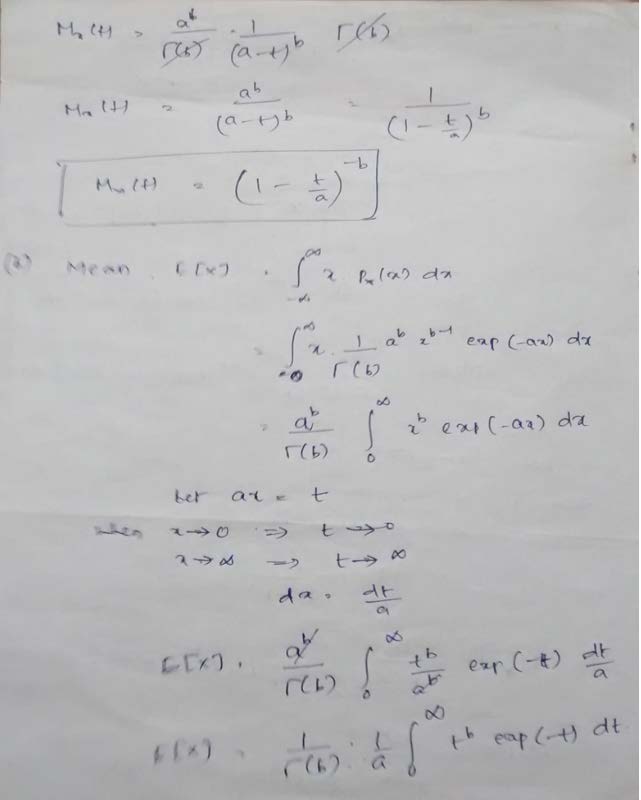 Mₓ(t) = a^b / Γ(b) · 1 / (a-t)^b Γ(b)
Mₓ(t) = a^b / (a-t)^b = 1 / (1 - t/a)^b
Mₓ(t) = (1 - t/a)^-b
(2) Mean E[X] = ∫_{-∞}^{∞} x Pₓ(x) dx
= ∫_0^∞ x · 1/Γ(b) a^b x^{b-1} exp(-ax) dx
= a^b / Γ(b) ∫_0^∞ x^b exp(-ax) dx
Let ax = t
when x→0 ⇒ t→0
x→∞ ⇒ t→∞
dx = dt/a
E[X] = a^b / Γ(b) ∫_0^∞ t^b / a^b exp(-t) dt/a
E[X] = 1/Γ(b) · 1/a ∫_0^∞ t^b exp(-t) dt